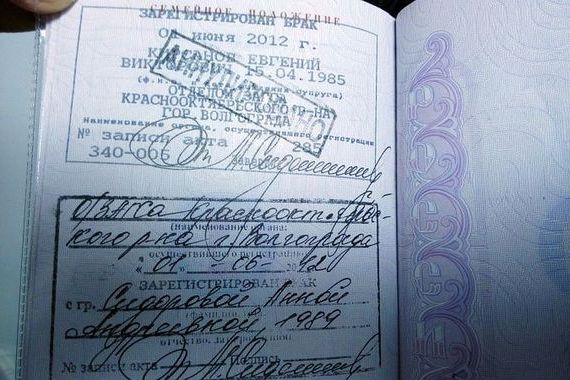 СЕМЕЙНОЕ ПОЛОЖЕНИЕ
ЗАРЕГИСТРИРОВАН БРАК
01 июня 2012 г.
ЕВГЕНИЙ
ВИКТОРОВИЧ 15.04.1985
АННУЛИРОВАНО
ОТДЕЛОМ ЗАГСА
КРАСНООКТЯБРЬСКОГО Р-НА
ГОР. ВОЛГОГРАДА
наименование органа, осуществившего регистрации
№ записи акта 285
340-006 Заверено
О/ЗАГСа Краснооктябрьс-
кого р-на г. Волгограда
(наименование органа,
осуществившего регистрацию)
"01" - 06 - 2012
ЗАРЕГИСТРИРОВАН БРАК
с гр. Сидоровой Анной
Андреевной, 1989
отчество, дата рождения)
№ записи акта Подпись